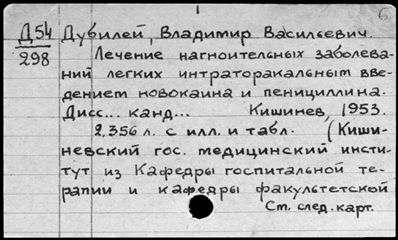 6
Д54 Дубилей, Владимир Васильевич.
298
Лечение нагноительных заболева-
ний легких интраторакальным вве-
дением новокаина и пенициллина.
Дисс... канд... Кишинев, 1953.
2,356 л. с илл. и табл. (Киши-
невский гос. медицинский инсти-
тут из Кафедры госпитальной те-
рапии и кафедры факультетской
См. след. карт.